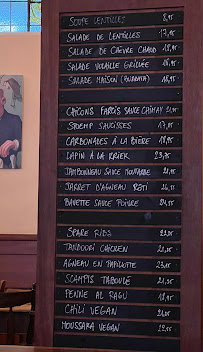 SOUPE LENTILLES 8,95
SALADE DE LENTILLES 17,95
SALADE DE CHÈVRE CHAUD 18,95
SALADE VOLAILLE GRILLÉE 18,95
SALADE MAISON (BURRATA) 18,95
CHICONS FARCIS SAUCE CHIMAY 21,95
STOEMP SAUCISSES 17,95
CARBONADES À LA BIÈRE 18,95
LAPIN À LA KRIEK 23,95
JAMBONNEAU SAUCE MOUTARDE 21,95
JARRET D'AGNEAU RÔTI
BAVETTE SAUCE POIVRE 24,95
SPARE RIBS 22,95
TANDOORI CHICKEN 21,95
AGNEAU EN PAPILLOTE 23,95
SCAMPIS TABOULÉ 21,95
PENNE AL RAGU 18,95
CHILI VEGAN 21,95
MOUSSAKA VEGAN 22,95